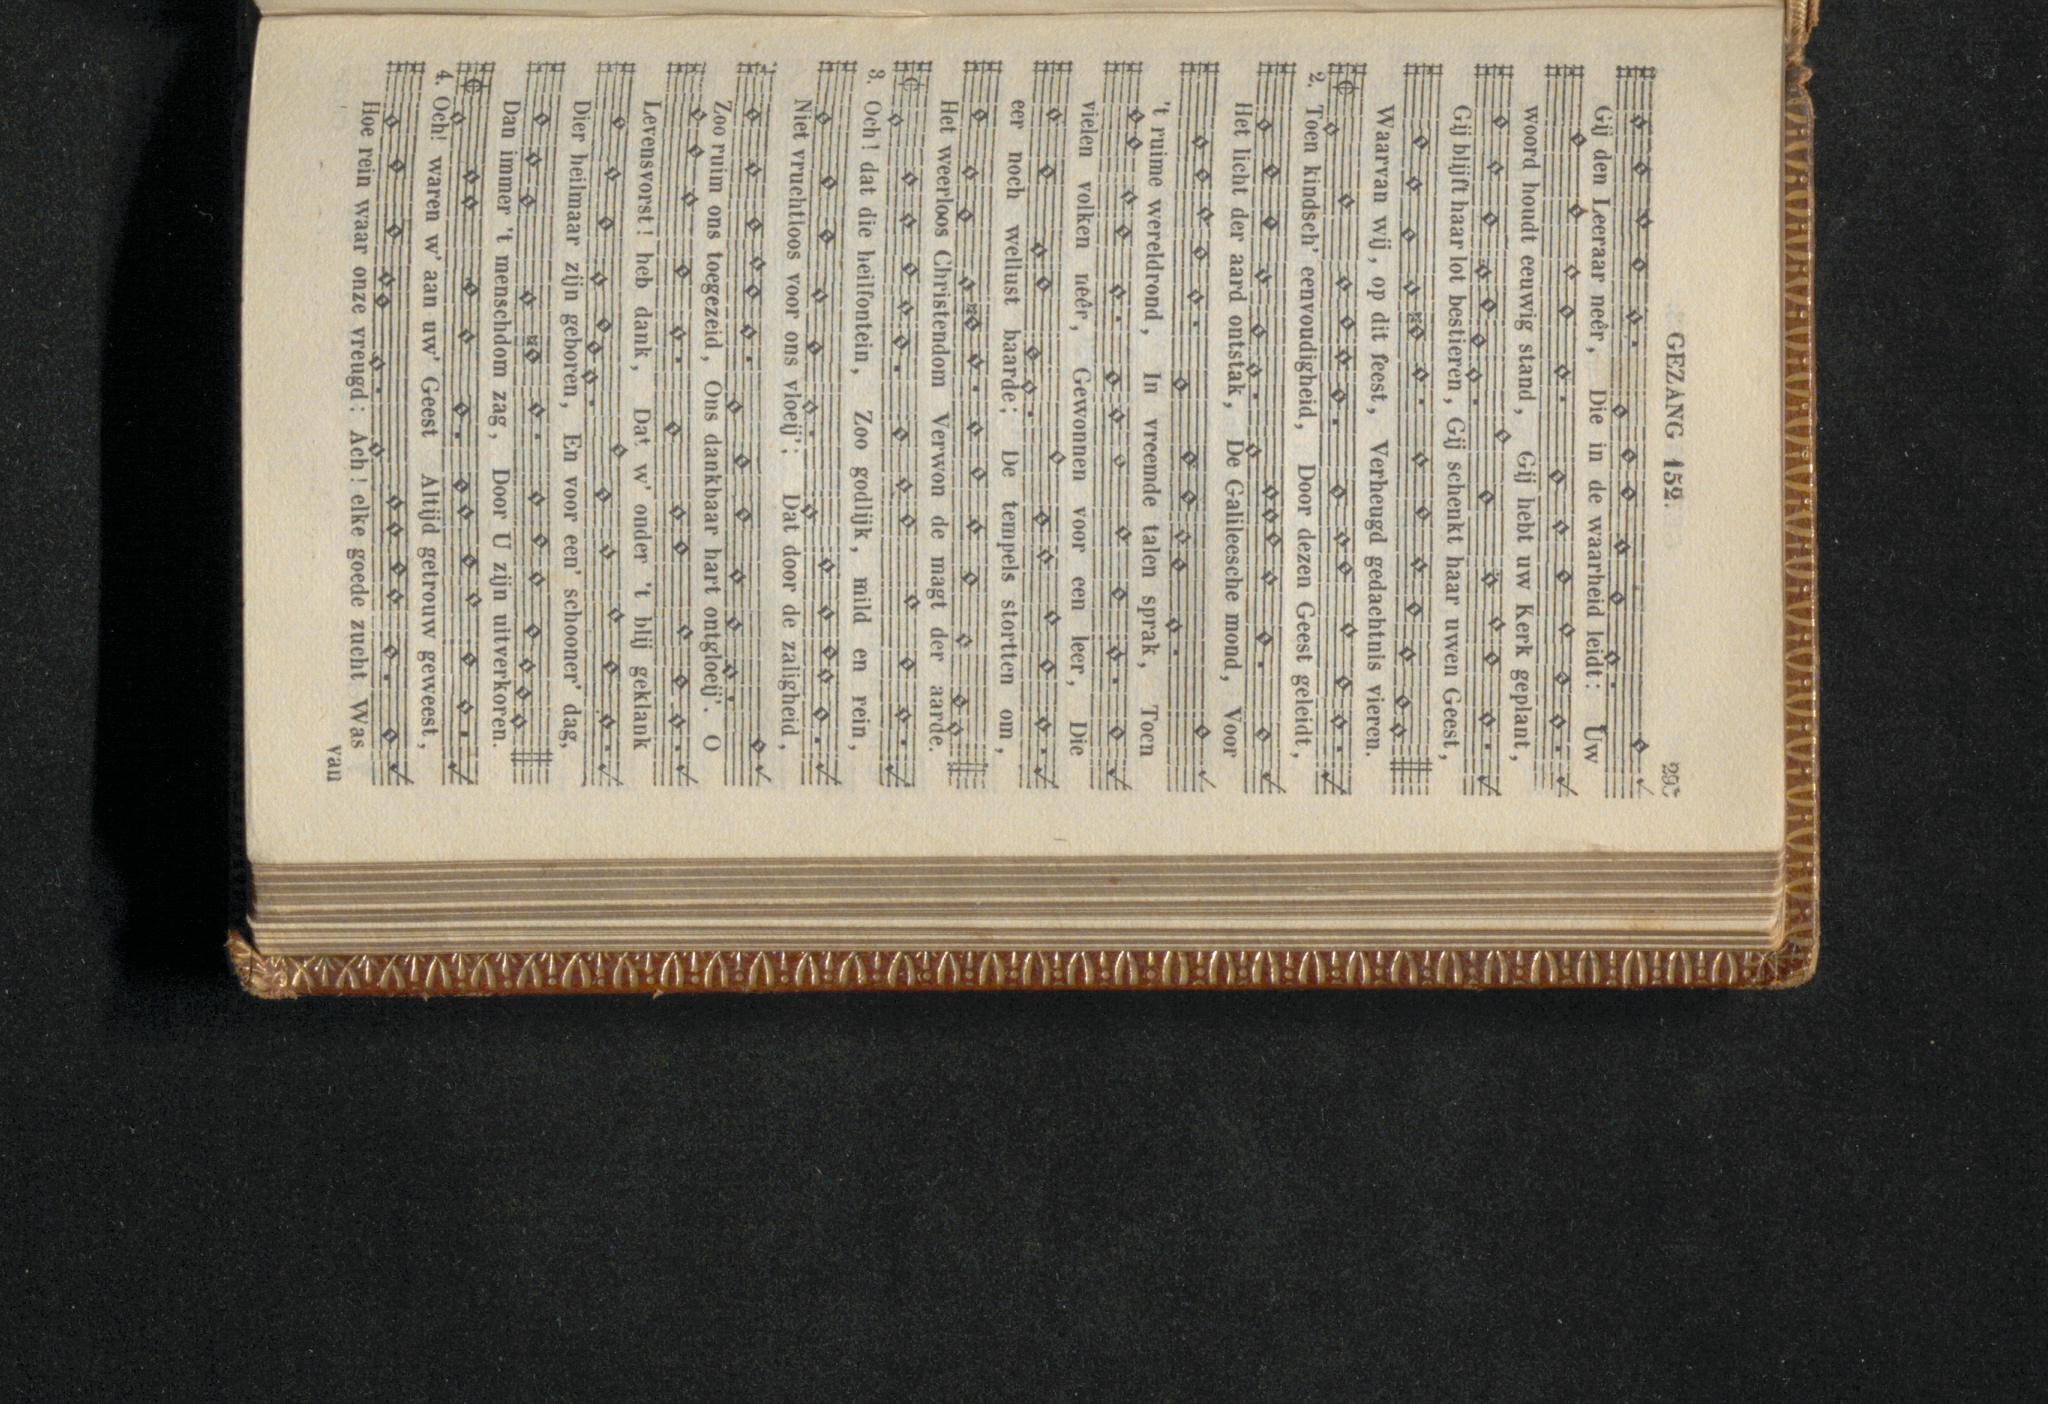 GEZANG 152.
Gij den Leeraar neêr, Die in de waarheid leidt: Uw
woord houdt eeuwig stand, Gij hebt uw Kerk geplant,
Gij blijft haar lot bestieren, Gij schenkt haar uwen Geest,
Waarvan wij, op dit feest, Verheugd gedachtnis vieren.
2. Toen kindsch' eenvoudigheid, Door dezen Geest geleidt,
Het licht der aard ontstak, De Galileesche mond, Voor
't ruime wereldrond, In vreemde talen sprak, Toen
vielen volken neêr, Gewonnen voor een leer, Die
eer noch wellust baarde; De tempels stortten om,
Het weerloos Christendom Verwon de magt der aarde.
3. Och! dat die heilfontein, Zoo godlijk, mild en rein,
Niet vruchtloos voor ons vloeij'; Dat door de zaligheid,
Zoo ruim ons toegezeid, Ons dankbaar hart ontgloeij'. O
Levensvorst! heb dank, Dat w' onder 't blij geklank
Dier heilmaar zijn geboren, En voor een' schooner' dag,
Dan immer 't menschdom zag, Door U zijn uitverkoren.
4. Och! waren w' aan uw' Geest Altijd getrouw geweest,
Hoe rein waar onze vreugd: Ach! elke goede zucht Was
van